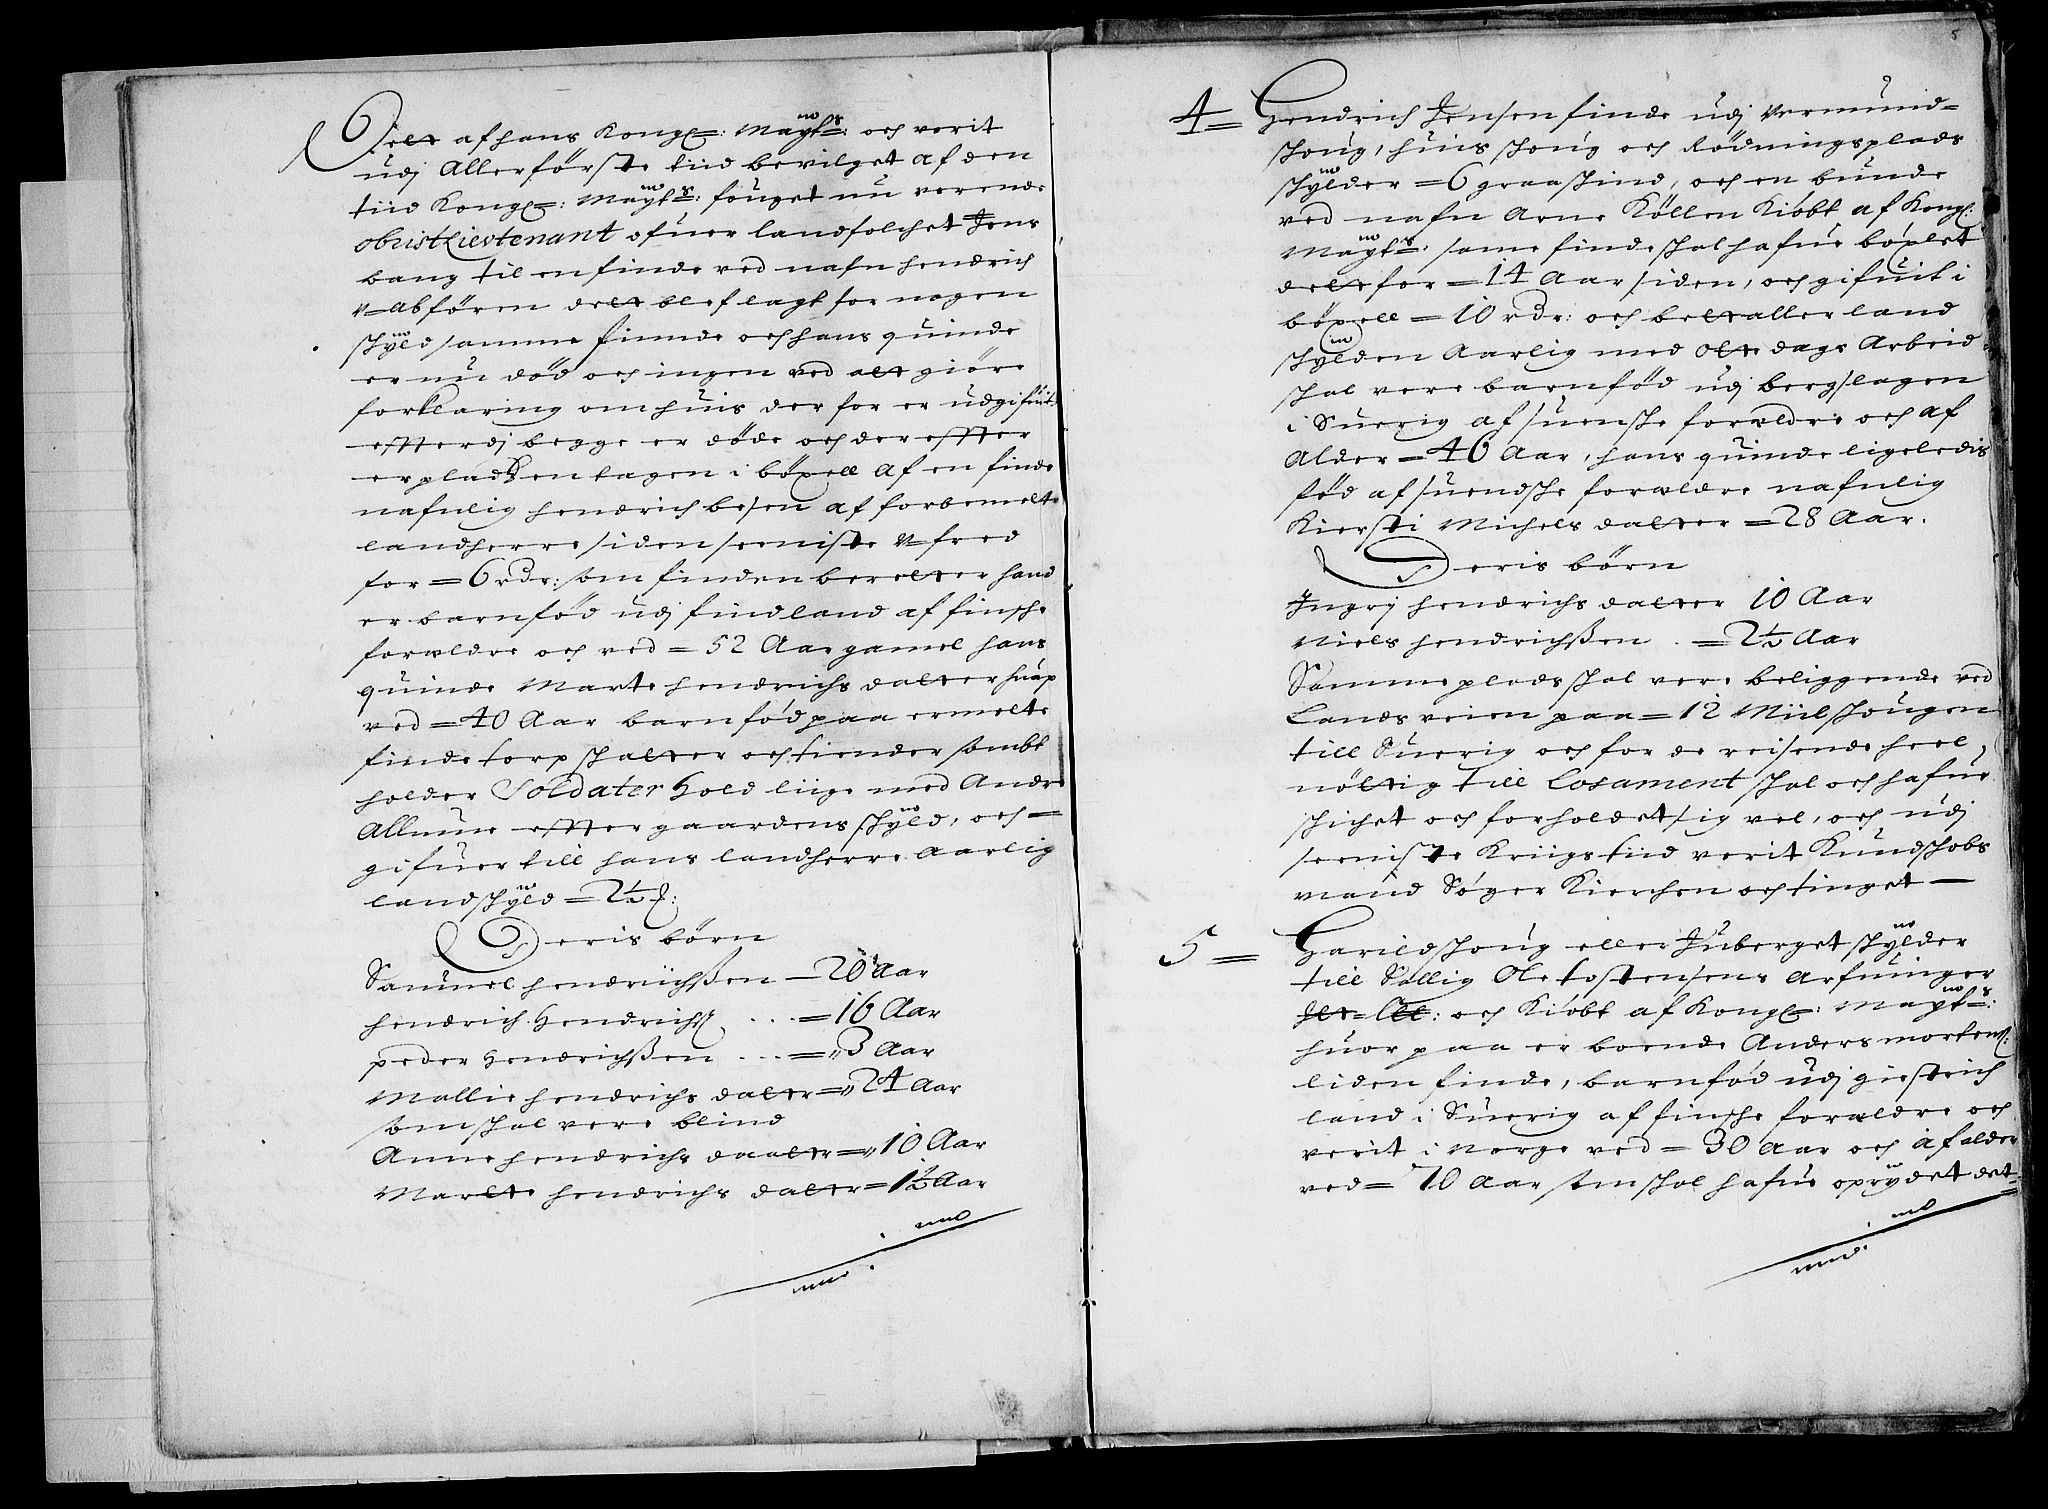 Dett af hans Kongl: Maytz: och verit
udj Allerförste tiid bevilget af den
tiid Kongl: Maytz: fouget nu verende
obristlieutenant ofuer landfolchet Jens
bang til en finde ved nafn hendrich
dett blef lagt for nogen
schyld samme finnde och hans quinde
er nu död och ingen ved att giöre
forklaring om huis der for er udgifuit
effterdj begge er döde och der effter
er pladsen tagen i böxell af en finde
nafnlig hendrich besen af forbemelte
landherre siden seeniste fred
for = 6 rdr: som finden beretter hand
er barnfød udj findland af finsche
foreldre och ved = 52 Aar gamel hans
quinde Marte hendrichs datter
ved = 40 Aar barnfød paa ermelte
findetorp schatter och tiender sambt
holder Soldater hold liige med Andre
Allmue effter gaardens schyld, och =
gifuer till hans landherre Aarlig
landschyld = 2½ :
Deris börn
Samuel hendriichßen = 20 Aar
hendrich Hendrichs = 16 Aar
peder hendrichßen = 3 Aar
Mallie hendrichs datter = 24 Aar
som schal vere blind
Anne hendrichs daatter = 10 Aar
Marte hendrichs datter = 1½ Aar
5
4 = Hendrich Jensen finde udj Vermund=
schoug, huis schoug och Rödningsplads
schylder = 6 graaschind, och en bunde
ved nafn Arne Köllen Kiöbt af Kongl:
Maytz: same finde schal hafue böxlet
dett for = 14 Aar siden, och gifuit i
böxell = 10 rdr: och bettaller land
schylden Aarlig med Otte dags Arbeid
schal vere barnföd udj bergslagen
i Suerig af suensche foreldre och af
Alder = 46 Aar, hans quinde ligeledis
föd af suendsche foreldre nafnlig
Kiersti Michels datter = 28 Aar.
Deris börn
Ingrj hendrichs datter 10 Aar
Niels hendrichßen = 2½ Aar
Samme plads schal vere beliggende ved
Lands veien paa = 12 Miil schougen
till Suerig och for de reisende heel,
nöttig till Losament schal och hafue
schichet och forholdet sig vel, och udj
seeniste Kriigs tiid verit Kundschobs
mand Söger Kierchen och tinget —
5 = Harildschoug eller Juberget schylder
till Sallig Ole tostensens Arfuinger
och Kiöbt af Kongl: Maytz:
huor paa er boende Anders mortens:
liden finde, barnföd udj giestrich
land i Suerig af finsche foreldre och
verit i Norge ved = 30 Aar och af alder
ved = 70 Aar som schal hafue oprydet det